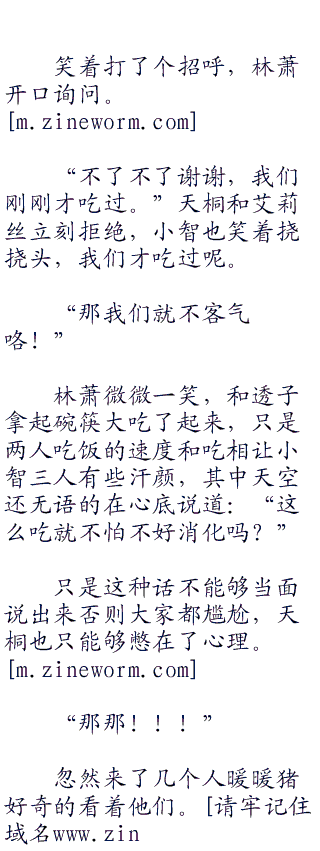 笑着打了个招呼，林萧
开口询问。
[m.zineworm.com]
“不了不了谢谢，我们
刚刚才吃过。”天桐和艾莉
丝立刻拒绝，小智也笑着挠
挠头，我们才吃过呢。
“那我们就不客气
咯！”
林萧微微一笑，和透子
拿起碗筷大吃了起来，只是
两人吃饭的速度和吃相让小
智三人有些汗颜，其中天空
还无语的在心底说道：“这
么吃就不怕不好消化吗？”
只是这种话不能够当面
说出来否则大家都尴尬，天
桐也只能够憋在了心理。
[m.zineworm.com]
“那那！！！”
忽然来了几个人暖暖猪
好奇的看着他们。[请牢记住
域名www.zin